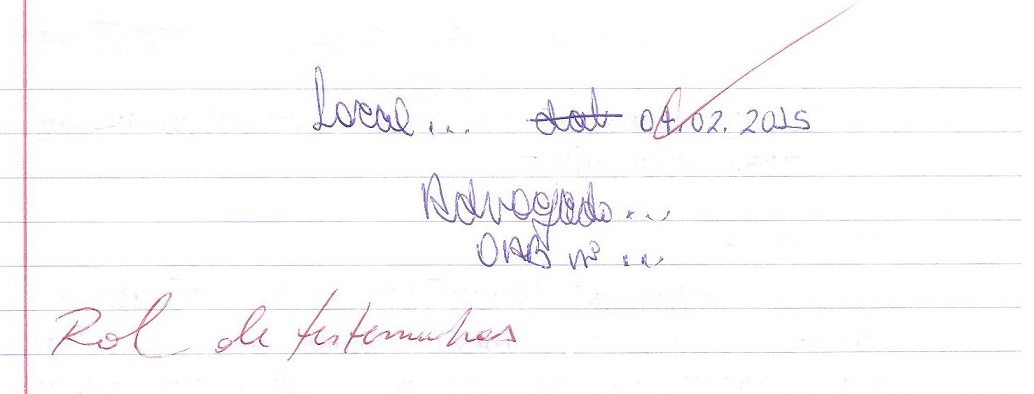 Local... dat 04.02.2015
Advogado...
OAB nº ...
Rol de testemunhas